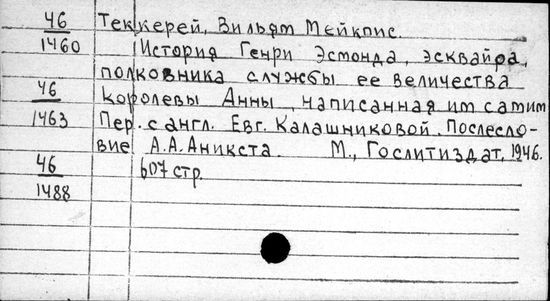 46
1460
46
1463
46
1488
Теккерей, Вильям Мейкпис.
История Генри Эсмонда, эсквайра,
полковника службы ее величества
королевы Анны, написанная им самим
Пер. с англ. Евг. Калашниковой. Послесло-
вие А.А.Аникста. М., Гослитиздат, 1946.
607 стр.